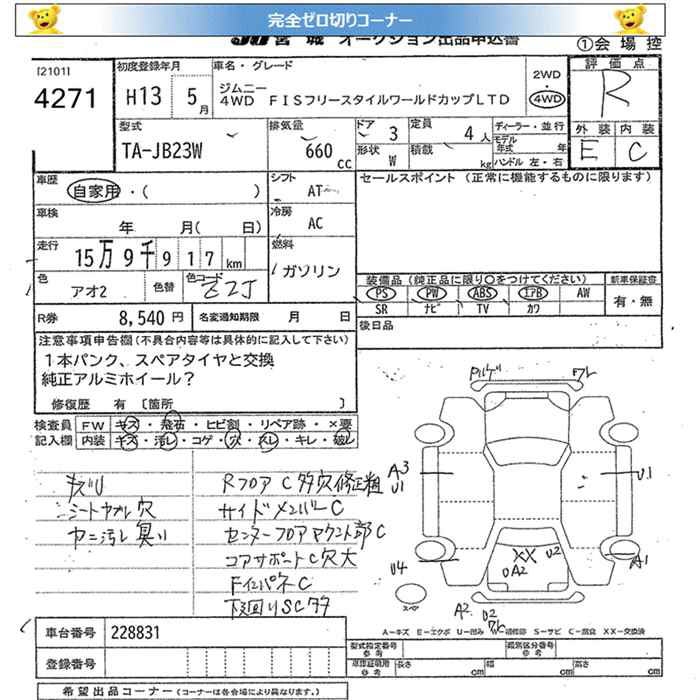 完全ゼロ切りコーナー
JU 宮城 オークション出品申込書
①会場控
[2101]
4271
初度登録年月
H13 5月
車名・グレード
ジムニー
4WD FISフリースタイルワールドカップLTD
2WD
・
4WD
評価点
R
外装 内装
E C
型式
TA-JB23W
排気量
660 cc
ドア 3
形状 W
定員 4人
積載 kg
ディーラー・並行
モデル年式 年
ハンドル 左・右
車歴
自家用・( )
シフト
AT
セールスポイント (正常に機能するものに限ります)
車検
年 月( 日)
冷房
AC
走行
15万9千917km
燃料
ガソリン
色
アオ2
色替
色コード
Z2J
装備品(純正品に限り○をつけてください)
新車保証書
PS PW ABS エアB AW
SR ナビ TV カワ
有・無
R券 8,540円
名変通知期限 月 日
後日品
注意事項申告欄(不具合内容等は具体的に記入して下さい)
1本パンク、スペアタイヤと交換
純正アルミホイール?
修復歴 有 [箇所 ]
検査員記入欄
FW キズ・飛石・ヒビ割・リペア跡・×要
内装 キズ・汚レ・コゲ・穴・スレ・キレ・破レ
キズU
シートケブル穴
ヤニ汚し臭い
Rフロア C多穴修正粗
サイドメンバーC
センターフロアマウント部C
コアサポートC穴大
FインパネC
下廻りSC多
ワレ
A3
U1
U1
XX
U2
U A2
U4
A1
スペア
A2
U2
ワレ
A-キズ E-エクボ U-凹み W-補修跡 S-サビ C-腐食 XX-交換済
車台番号 228831
登録番号
型式指定番号 参考
類別区分番号 参考
車認証明用 参考
長さ cm 幅 cm 高さ cm
希望出品コーナー(コーナーは各会場により異なります。)